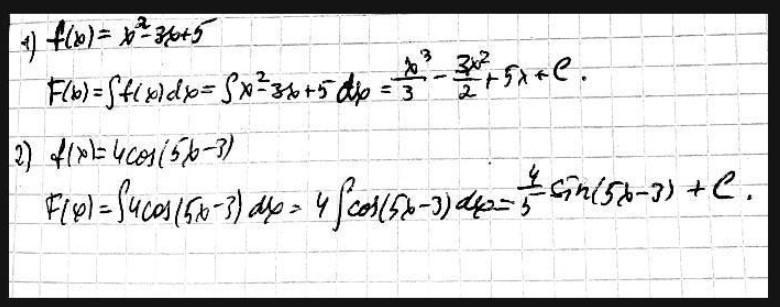 1) f(x) = x² - 3x + 5
F(x) = ∫f(x)dx = ∫x² - 3x + 5 dx = x³/3 - 3x²/2 + 5x + C.
2) f(x) = 4cos(5x-3)
F(x) = ∫4cos(5x-3) dx = 4∫cos(5x-3) dx = 4/5 sin(5x-3) + C.